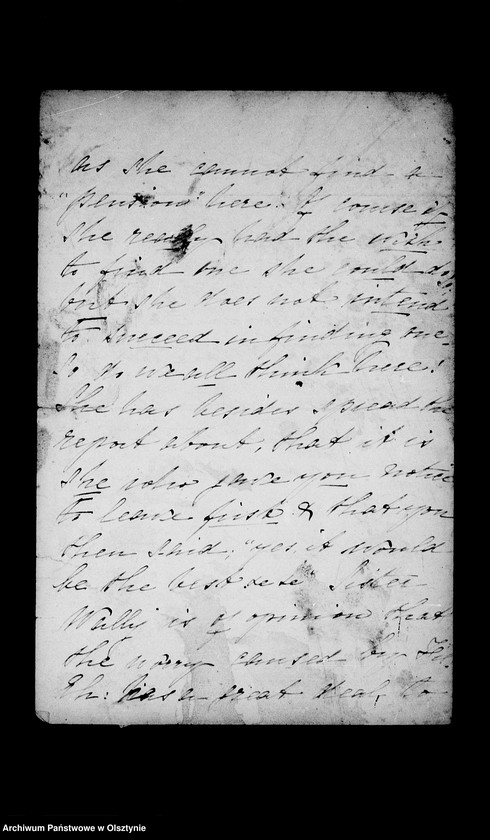 as she cannot find a
"pension" here. Of course if
she really had the wish
to find one she could do so
but she does not intend
to succeed in finding one.
So do we all think here!
She has besides spread the
report about, that it is
she who gave you notice
to leave first & that you
then said: "yes it would
be the best
Sister
Wally is of opinion that
the worry caused by
Th: has a great deal to
Archiwum Państwowe w Olsztynie